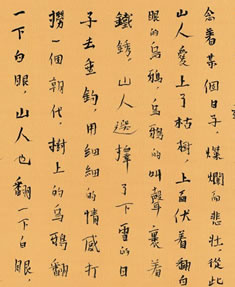 念着某個日子,燦爛而悲壯,從此
山人愛上了枯樹,上面伏着翻白
眼的烏鴉,烏鴉的叫聲裏着
鐵銹,山人選擇了下雪的日
子去垂釣,用細細的情感打
撈一個朝代,樹上的烏鴉翻
一下白眼,山人也翻一下白眼,